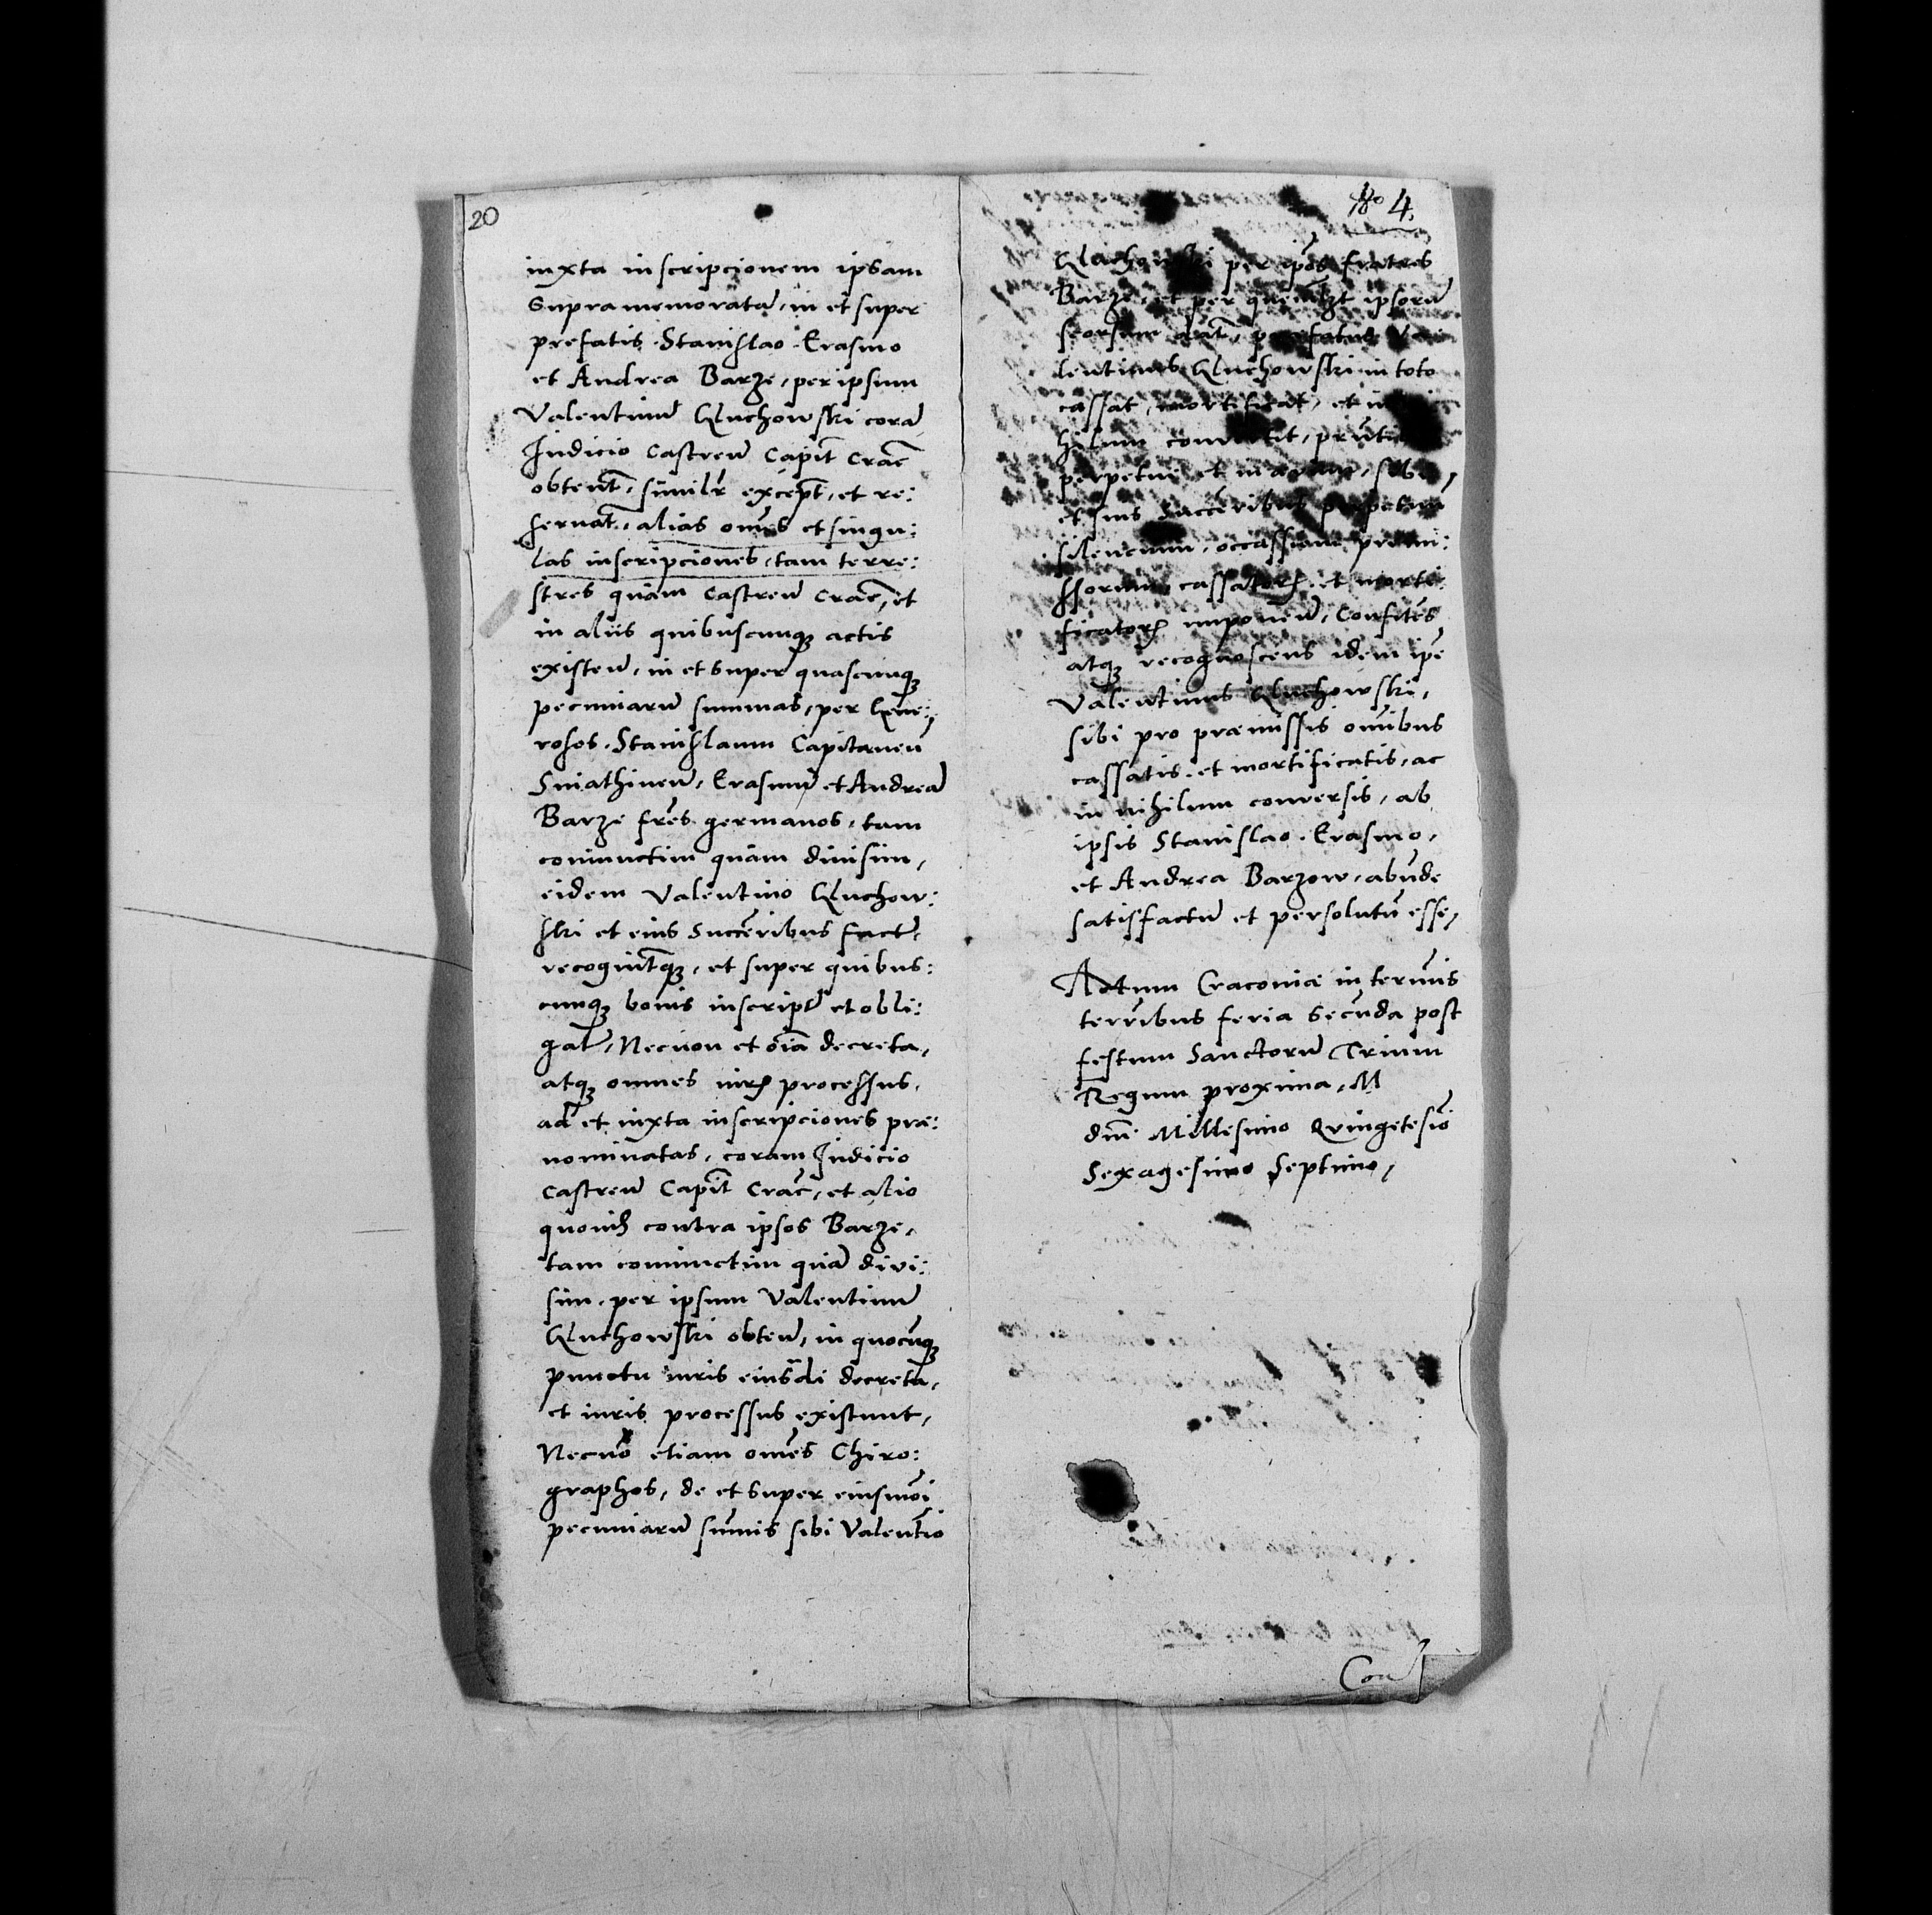 20
iuxta inscripcionem ipsam
supramemoratā, in et super
prefatis Stanislao Erasmo
et Andrea Barze, per ipsum
Valentinū Gluchowski corā
Iudicio Castreñ Capit̃ Crac̃
obtent̃, similr̃ except̃, et re:
seruat̃, alias om̃es et singu:
las inscripciones, tam terre:
stres quàm Castreñ Crac̃, et
in aliis quibuscunqꝫ actis
existeñ, in et super quascunqꝫ
pecuniarū summas, per Gene:
rosos Stanislaum Capitaneū
Sniathineñ, Erasmū et Andreā
Barze fr̃es germanos, tam
coniunctim quàm diuisim,
eidem Valentino Gluchow:
ski et eius Succ̃eribus fact̃,
recognit̃qꝫ, et super quibus:
cunqꝫ bonis inscript̃ et obli:
gat̃, Necnon et oĩa decreta,
atqꝫ omnes iurꝭ processus,
ad et iuxta inscripciones præ:
nominatas, coram Iudicio
Castreñ Capit̃ Crac̃, et alio
quouis contra ipsos Barze,
tam coniunctim quā divi:
sim, per ipsum Valentinū
Gluchowski obteñ, in quocūqꝫ
punctu iuris eiusdi decreta,
et iuris processus existunt,
Necnō etiam om̃es Chiro:
graphos, de et super eiusmõi
pecuniarū sum̃is sibi Valent̃io
4.
Gluchowski per ip̃os fratres
Barze, et per quemlꝫt ipsorū
seorsum dat̃, praefatus Va:
lentinus Gluchowski in toto
cassat, mortificat, et in ni
hilum convertit,
perpetuè et in aevum, sibi,
et suis Succ̃eribus perpetuū
silencium, occassione præmi:
ssorum cassatorꝭ et morti:
ficatorꝭ imponeñ, Confitẽs
atqꝫ recognoscens idem ip̃e
Valentinus Gluchowski,
sibi pro præmissis om̃ibus
cassatis et mortificatis, ac
in nihilum conversis, ab
ipsis Stanislao Erasmo,
et Andrea Barzow, abūde
satisfactū et persolutū esse,
Actum Cracoviæ in term̃is
terr̃ibus feria secūda post
festum Sanctorū Trium
Regum proxima, M
dñi Millesimo Qvingētesiō
Sexagesimo Septimo,